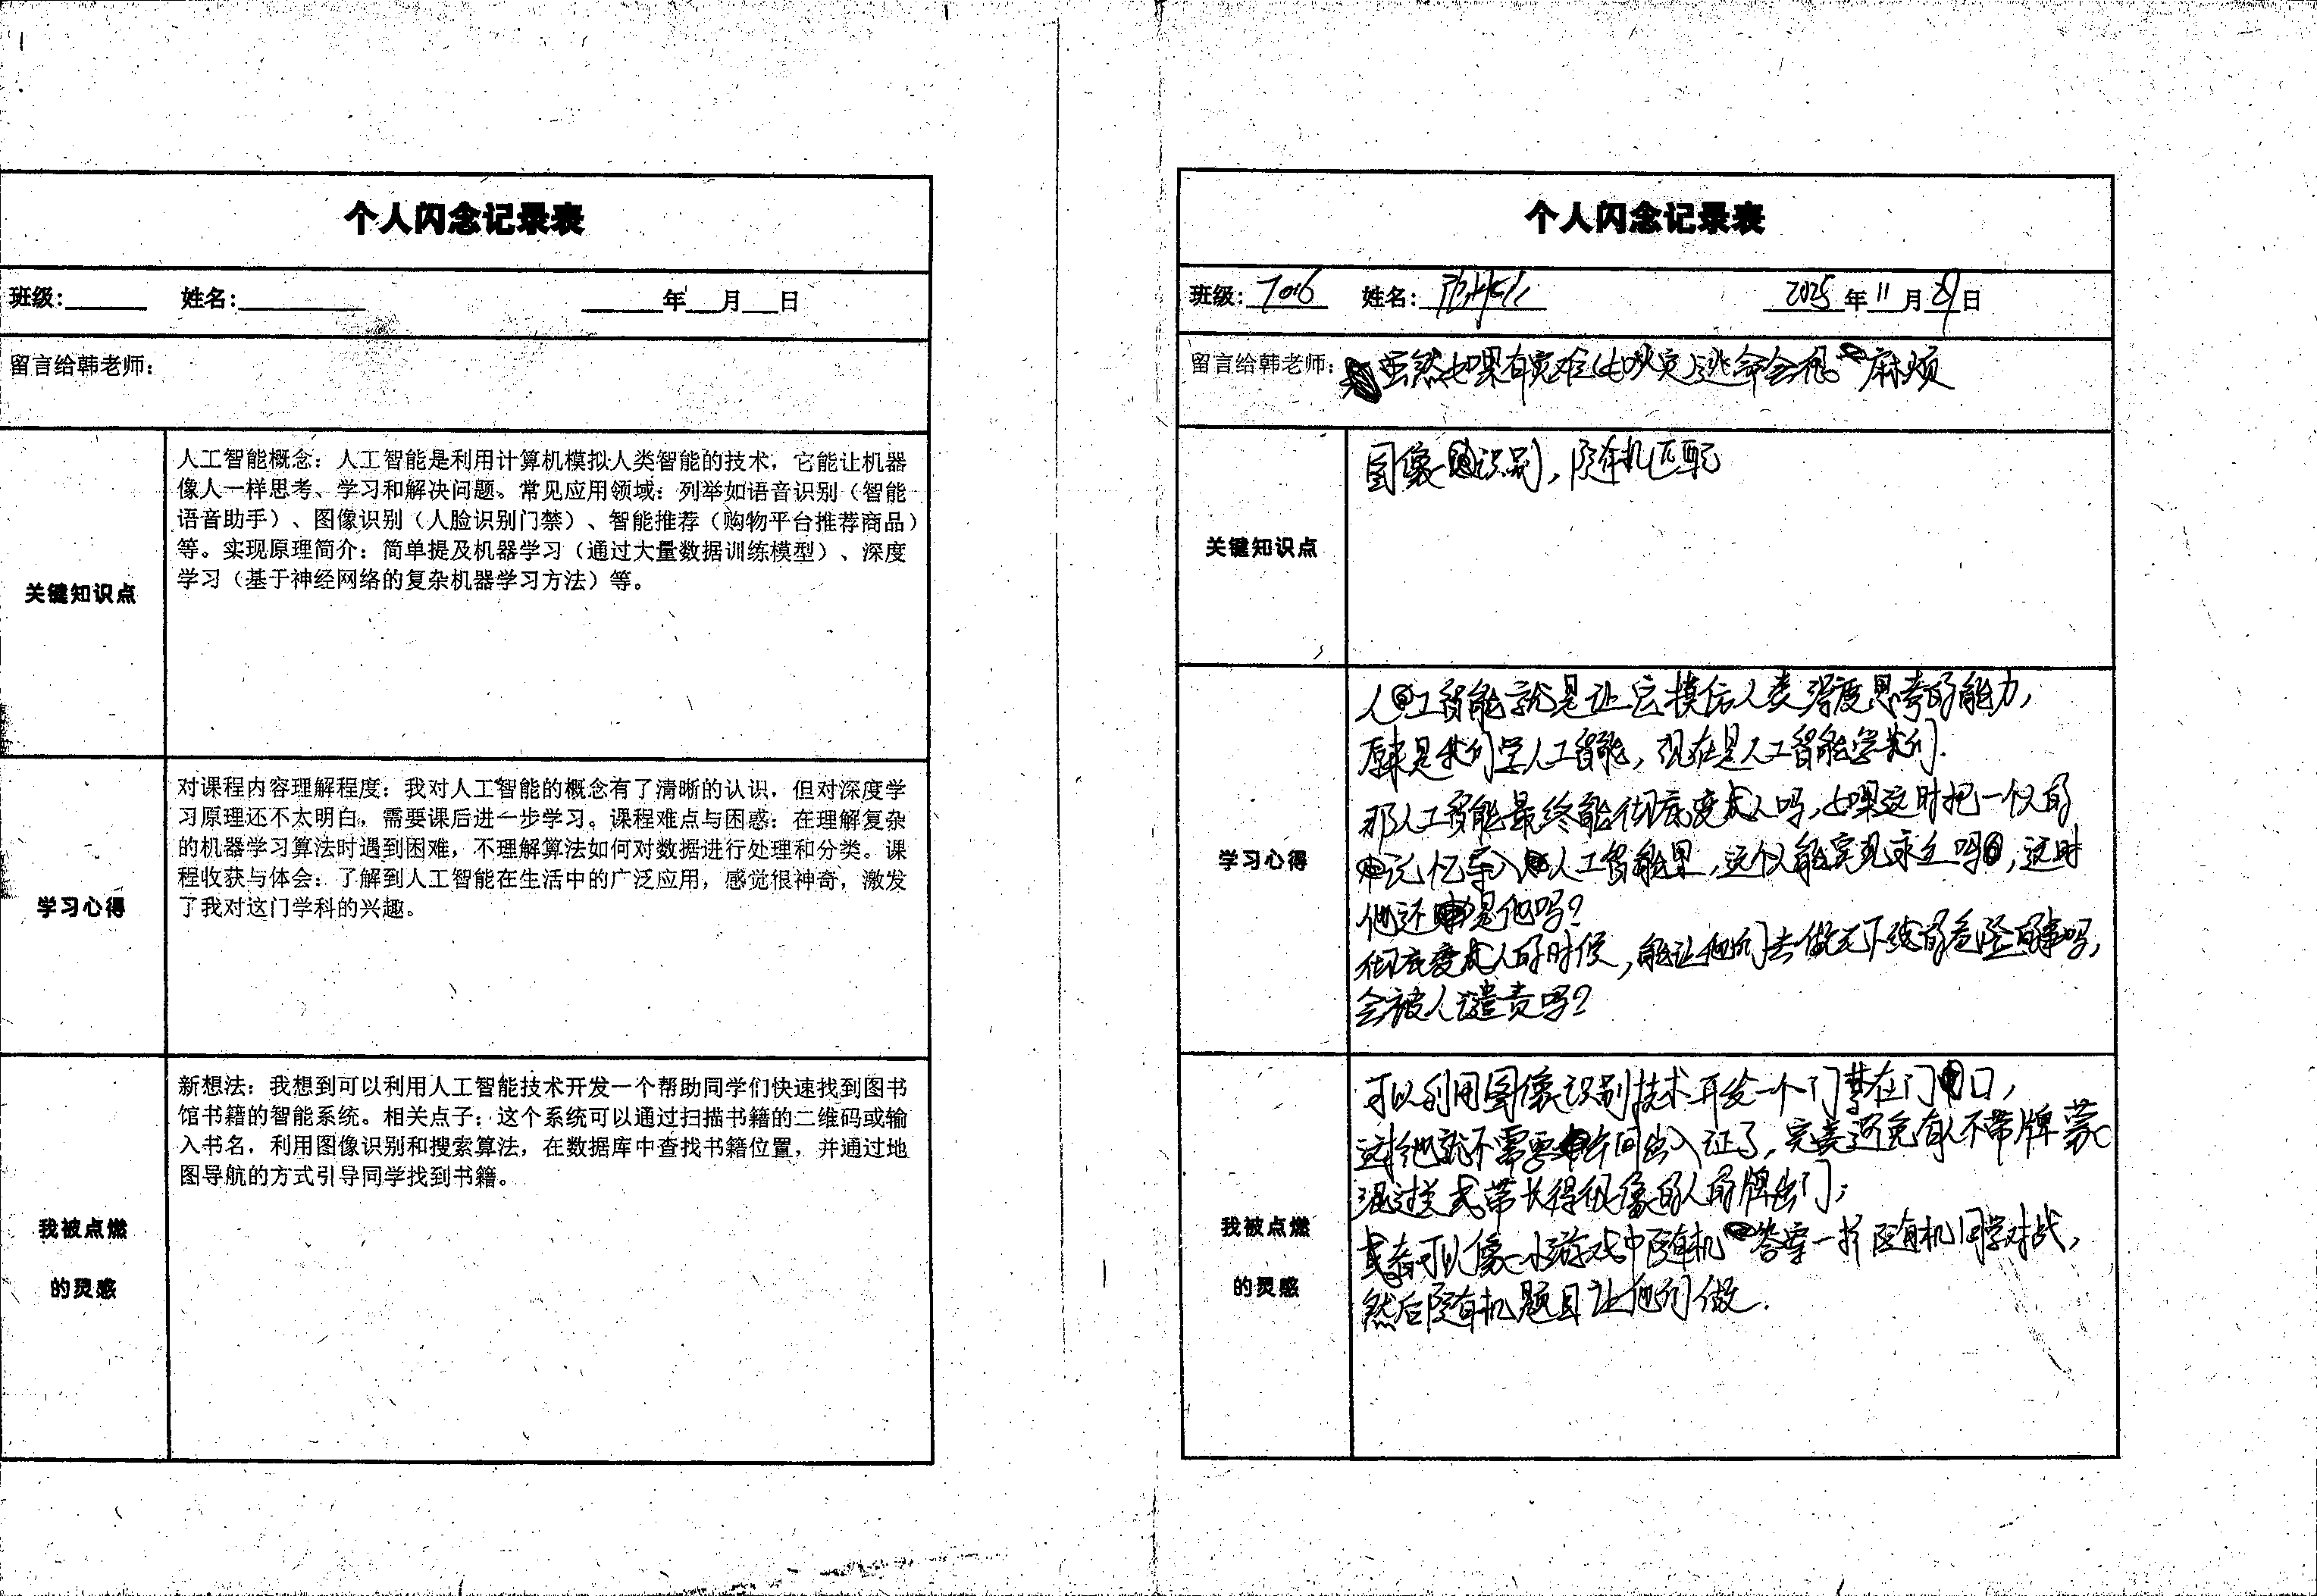 个人闪念记录表
班级:______ 姓名:________ ______年__月__日
留言给韩老师:
关键知识点
人工智能概念:人工智能是利用计算机模拟人类智能的技术,它能让机器
像人一样思考、学习和解决问题。常见应用领域:列举如语音识别(智能
语音助手)、图像识别(人脸识别门禁)、智能推荐(购物平台推荐商品)
等。实现原理简介:简单提及机器学习(通过大量数据训练模型)、深度
学习(基于神经网络的复杂机器学习方法)等。
学习心得
对课程内容理解程度:我对人工智能的概念有了清晰的认识,但对深度学
习原理还不太明白,需要课后进一步学习。课程难点与困惑:在理解复杂
的机器学习算法时遇到困难,不理解算法如何对数据进行处理和分类。课
程收获与体会:了解到人工智能在生活中的广泛应用,感觉很神奇,激发
了我对这门学科的兴趣。
我被点燃
的灵感
新想法:我想到可以利用人工智能技术开发一个帮助同学们快速找到图书
馆书籍的智能系统。相关点子:这个系统可以通过扫描书籍的二维码或输
入书名,利用图像识别和搜索算法,在数据库中查找书籍位置,并通过地
图导航的方式引导同学找到书籍。
个人闪念记录表
班级: 7016 姓名: 2025 年 11 月 日
留言给韩老师: 虽然如果有灾难(如火灾)逃命会很麻烦
关键知识点
图像识别,随机匹配
学习心得
人工智能就是让它模仿人类深度思考的能力,
原来是我们学人工智能,现在是人工智能学我们.
那人工智能最终能彻底变成人吗,如果这时把一个人的
记忆导入人工智能里,这个人能实现永生吗,这时
他还是他吗?
彻底变成人的时候,能让他们去做无下线的危险的事吗,
会被人谴责吗?
我被点燃
的灵感
可以利用图像识别技术开发一个门禁在门口,
这样他就不需要年间出入证了,完美避免有人不带牌蒙
混过关或带长得很像的人的牌出门;
或者可以像一小游戏中随机答案一样随机同学对战,
然后随机题目让他们做.